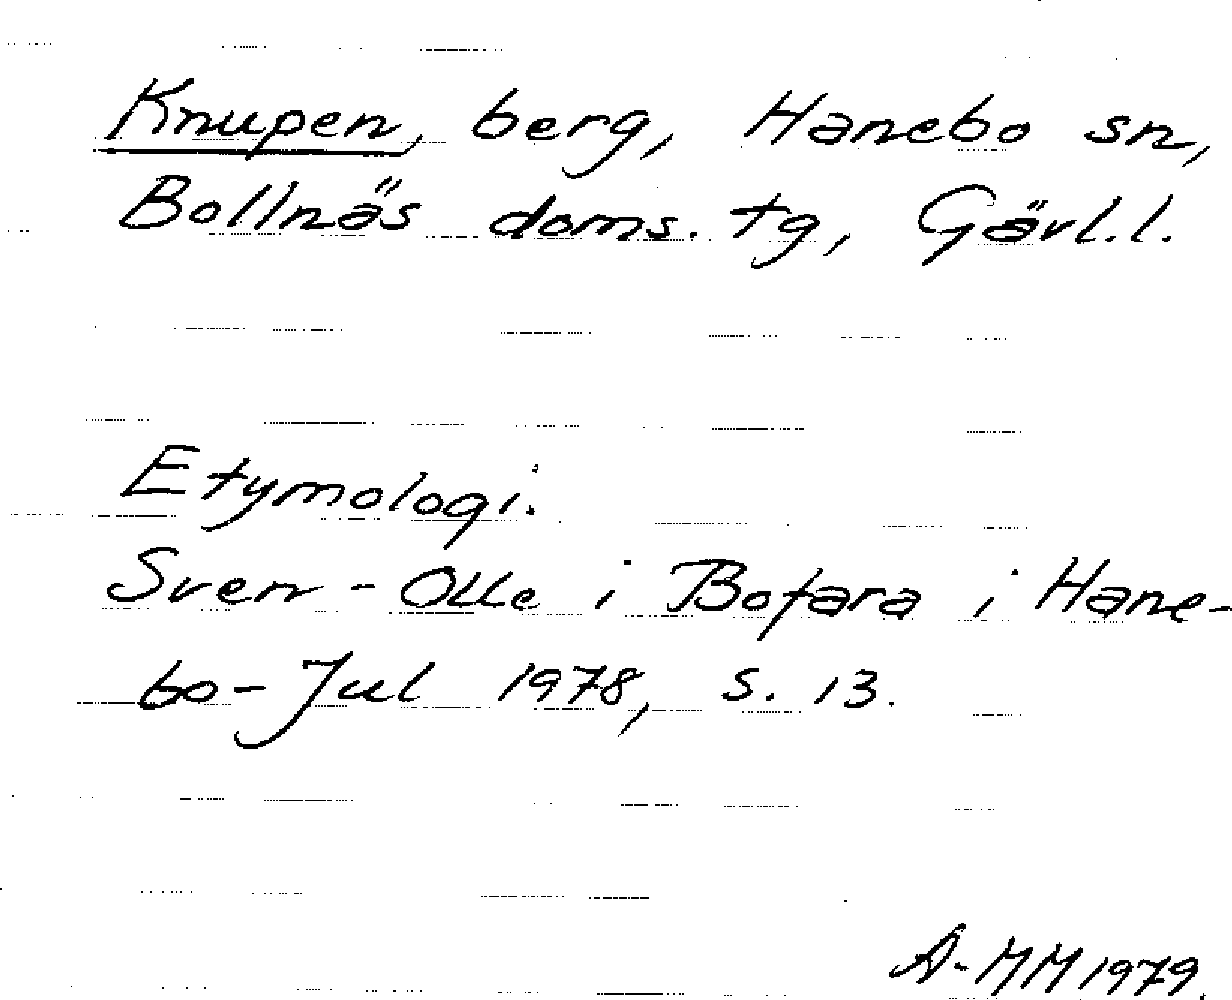 Knupen, berg, Hanebo sn,
Bollnäs doms. tg, Gävl.l.
Etymologi.
Sven-Olle i Bofara i Hane-
bo-Jul 1978, s. 13.
A-MM 1979.